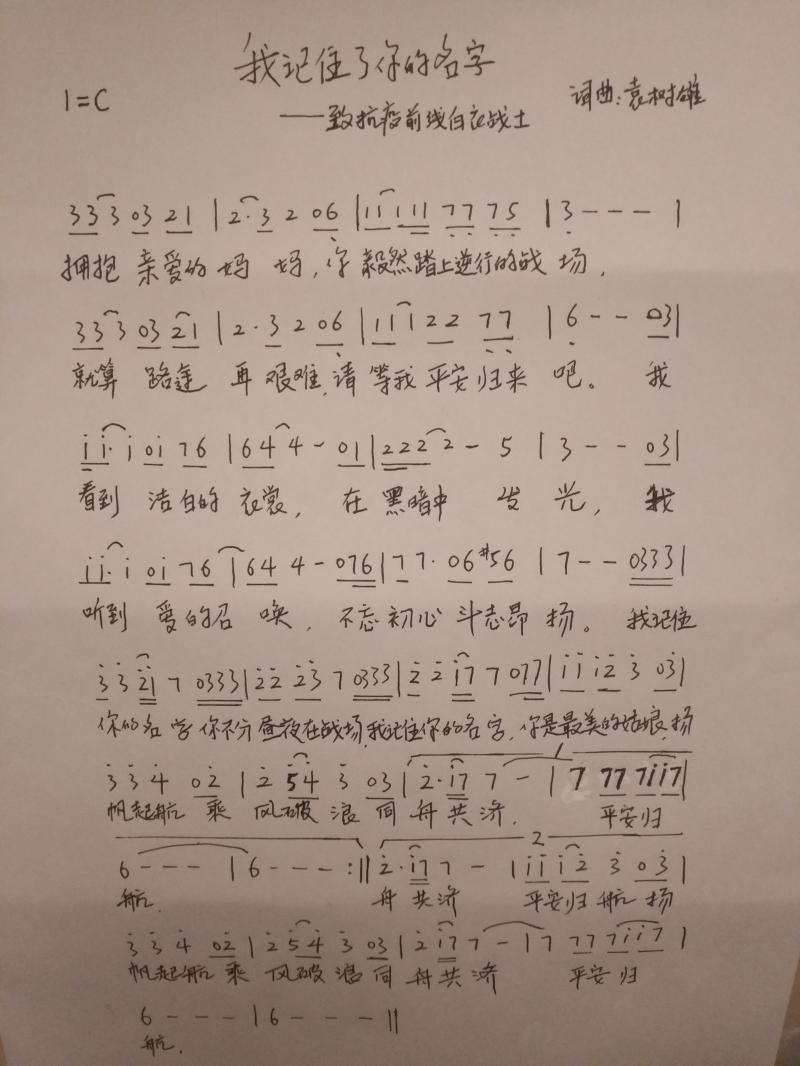 我记住了你的名字
1=C ——致抗疫前线白衣战士 词曲:袁树雄
3 3 3 03 21 | 2· 3 2 06 | 11 1 11 77 75 | 3 - - - |
拥抱 亲爱的 妈 妈,你 毅然踏上逆行的战 场,
33 3 03 21 | 2· 3 2 06 | 11 1 22 77 | 6 - - 03 |
就算 路途 再 艰难,请 等我 平安 归来 吧。 我
i i· i 0i 76 | 64 4 - 01 | 222 2 - 5 | 3 - - 03 |
看到 洁白的 衣裳, 在 黑暗中 发 光, 我
i i· i 0i 76 | 64 4 - 076 | 77· 06 #56 | 7 - - 0333 |
听到 爱的召 唤, 不忘 初心 斗志昂 扬。 我记住
3 3 21 7 0333 | 22 23 7 0333 | 2 2 i7 7 077 | ii i2 3 03 |
你的名 字 你不分 昼夜在战场,我记住你的名 字,你是最美的姑娘,扬
3 3 4 02 | 2 54 3 03 | 2· i7 7 - | 7 77 7ii7 |
帆起航 乘 风破 浪 同 舟 共 济, 平安归
6 - - - | 6 - - - :|| 2· i7 7 - | ii i2 3 03 |
航. 舟 共济 平安归 航 扬
3 3 4 02 | 2 54 3 03 | 2 i7 7 - | 7 77 7ii7 |
帆起航 乘 风破 浪 同 舟 共 济 平安 归
6 - - - | 6 - - - ||
航.